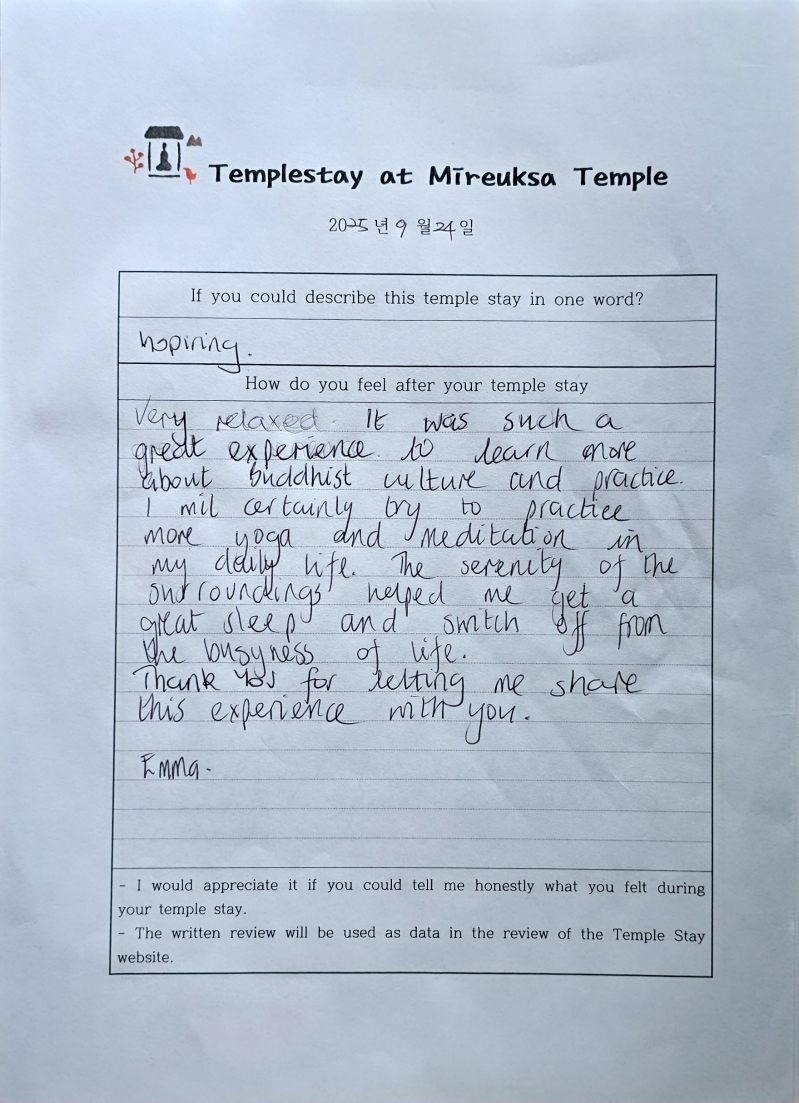 Templestay at Mireuksa Temple
2025년 9월 24일
If you could describe this temple stay in one word?
Inspiring.
How do you feel after your temple stay
Very relaxed. It was such a
great experience to learn more
about buddhist culture and practice.
I will certainly try to practice
more yoga and meditation in
my daily life. The serenity of the
surroundings helped me get a
great sleep and switch off from
the busyness of life.
Thank you for letting me share
this experience with you.
Emma.
- I would appreciate it if you could tell me honestly what you felt during
your temple stay.
- The written review will be used as data in the review of the Temple Stay
website.